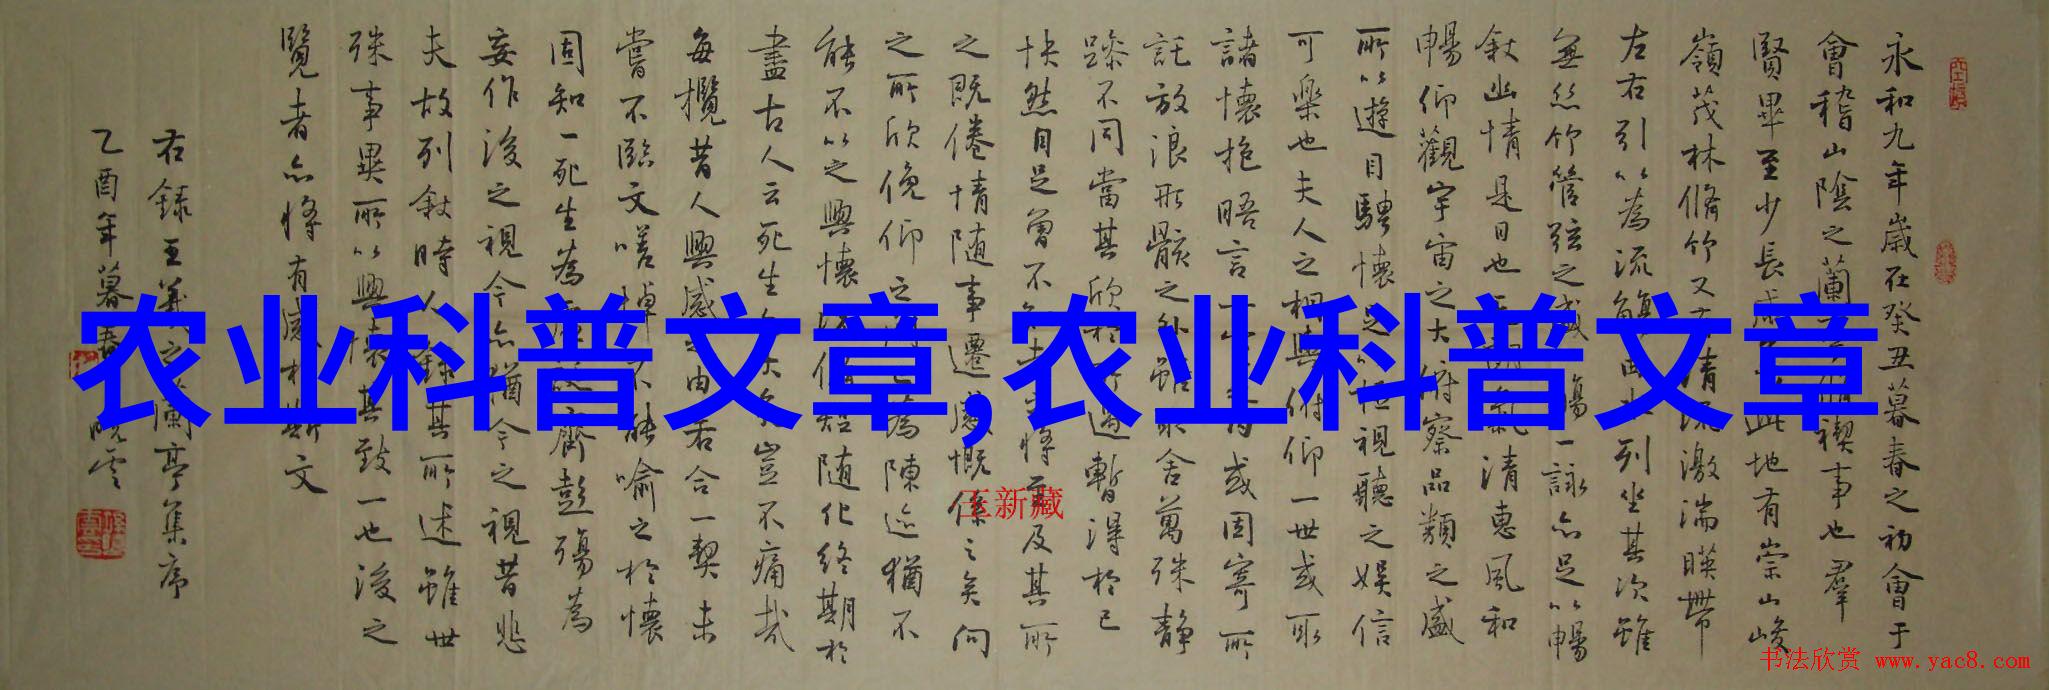 农业科普文章,农业科普文章
永和九年歲在癸丑暮春之初會于
會稽山陰之蘭禊事也羣
賢畢至少長咸此地有崇山峻
嶺茂林脩竹又清流激湍暎帶
左右引以為流觴曲水列坐其次雖
無絲竹管弦之盛一觴一詠亦足以暢
敘幽情是日也天朗氣清惠風和
暢仰觀宇宙之大俯察品類之盛
所以遊目騁懷足以極視聽之娛信
可樂也夫人之相與俯仰一世或取
諸懷抱晤言一內或因寄所
託放浪形骸之外雖趣舍萬殊靜
躁不同當其欣於所遇暫得於己
怏然自足曾不知老之將至及其所
之既倦情随事遷感慨係之矣向
之所欣俛仰之間為陳迹猶不
能不以之興懷況脩短随化終期於
盡古人云死生亦大矣豈不痛哉
每攬昔人興感之由若合一契未
嘗不臨文嗟悼不能喻之於懷
固知一死生為虛誕齊彭殤為
妄作後之視今亦猶今之視昔悲
夫故列敘時人錄其所述雖世
殊事異所以興懷其致一也後之
覽者亦將有感於斯文
右錄王羲之蘭亭集序
乙酉年暮春曉雲
王新藏
书法欣赏 www.yac8.com